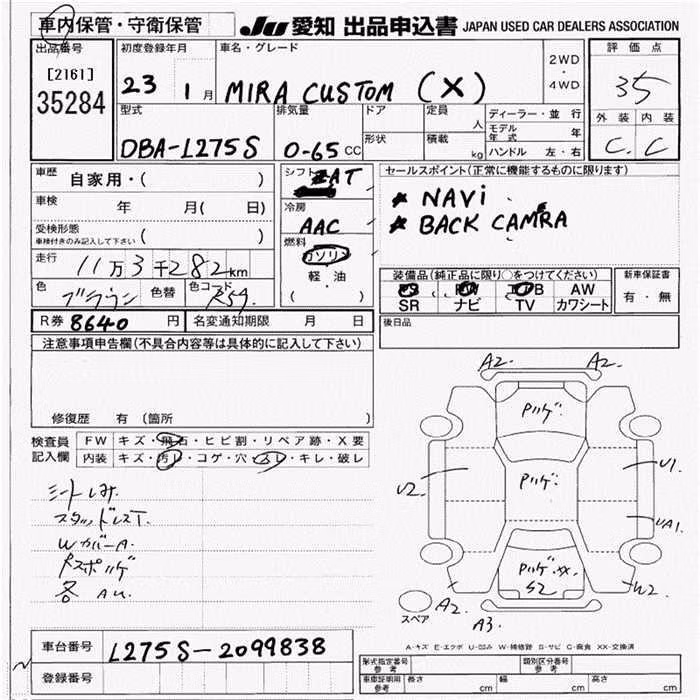 車内保管・守衛保管
JU 愛知 出品申込書 JAPAN USED CAR DEALERS ASSOCIATION
出品番号
[2161]
35284
初度登録年月
23 1月
車名・グレード
MIRA CUSTOM (X)
2WD
・
4WD
評価点
35
外装 内装
C. C
型式
DBA-L275S
排気量
0-65 CC
ドア
形状
定員
人
積載
kg
ディーラー・並行
モデル年式 年
ハンドル 左・右
車歴 自家用・( )
車検 年 月( 日)
受検形態
車検付きのみ記入して下さい ( )
走行 11万3千282km
色 ブラウン 色替 色コード R59.
シフト AT
冷房
AAC
燃料
ガソリン
軽・油
( )
セールスポイント(正常に機能するものに限ります)
★ NAVi
★ BACK CAMRA
装備品(純正品に限り○をつけてください)
AW
SR ナビ TV カワシート
新車保証書
有・無
R券 8640 円 名変通知期限 月 日
後日品
注意事項申告欄(不具合内容等は具体的に記入して下さい)
修復歴 有 (箇所 )
検査員
記入欄
FW キズ・飛石・ヒビ割・リペア跡・X要
内装 キズ・汚レ・コゲ・穴・スレ・キレ・破レ
シートしみ.
スタッドレスT.
WカバーA.
各 AU.
A2. A2.
Pハゲ.
U2. Pハゲ. U1.
UA1.
Pハゲ.xx.
S2
A2. W2
A3.
スペア
A-キズ E-エクボ U-凹み W-補修跡 S-サビ C-腐食 XX-交換済
車台番号 L275S-2099838
登録番号
形式指定番号
参考
類別区分番号
参考
車庫証明用
参考
長さ cm 幅 cm 高さ cm